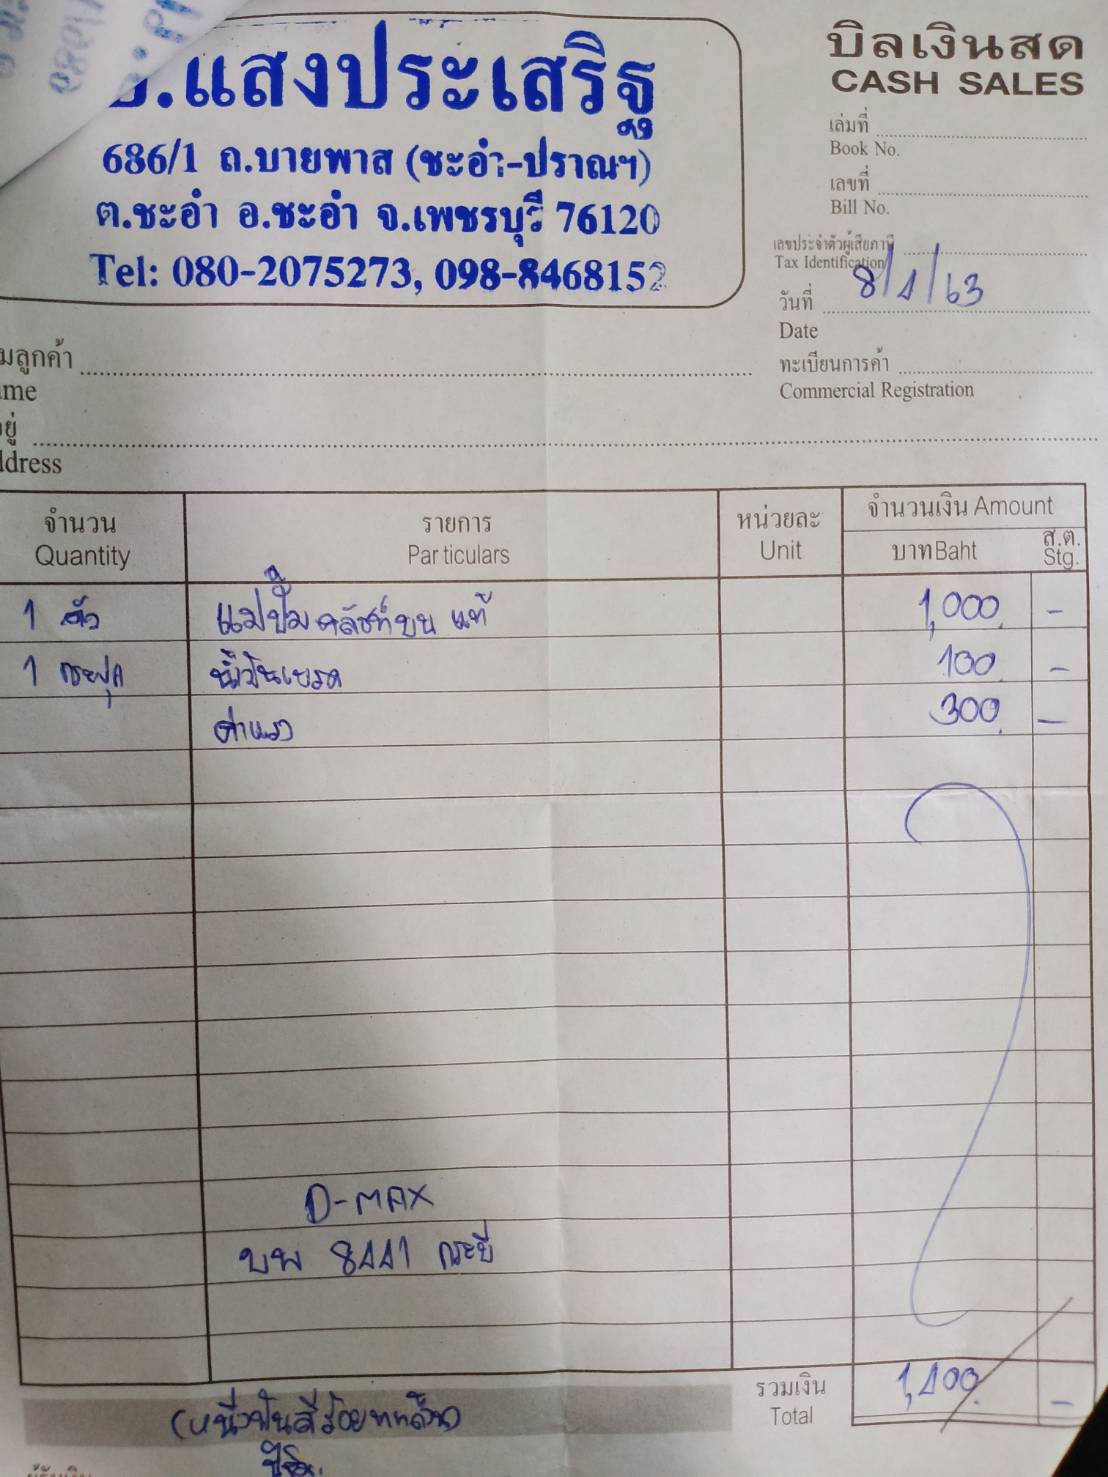 .แสงประเสริฐ
686/1 ถ.บายพาส (ชะอำ-ปราณฯ)
ต.ชะอำ อ.ชะอำ จ.เพชรบุรี 76120
Tel: 080-2075273, 098-8468152
บิลเงินสด
CASH SALES
เล่มที่
Book No.
เลขที่
Bill No.
เลขประจำตัวผู้เสียภาษี
Tax Identification
วันที่ 8/1/63
Date
ทะเบียนการค้า
Commercial Registration
มลูกค้า
ame
อยู่
ddress
จำนวน รายการ หน่วยละ จำนวนเงิน Amount
Quantity Particulars Unit บาท Baht ส.ต. Stg.
1 ตัว แม่ปั๊มคลัชท์บน แท้ 1,000 -
1 กระปุก น้ำมันเบรค 100 -
ค่าแรง 300 -
D-MAX
บพ 8441 กระบี่
รวมเงิน 1,400 -
Total
(หนึ่งพันสี่ร้อยบาทถ้วน)